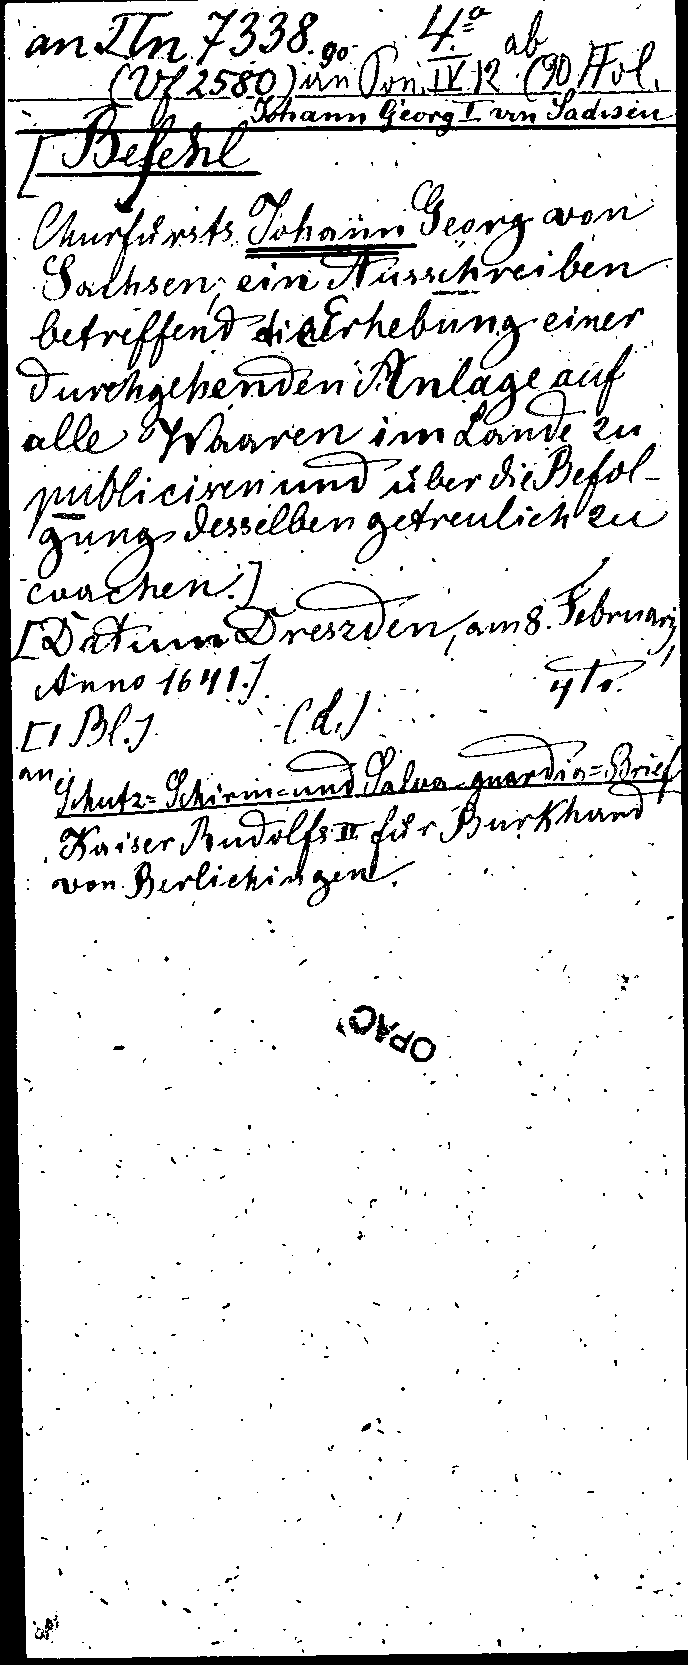 an IIn 7338. 4.º
(Vf 2580) an Pon. IV 12 ab Fol.
Johann Georg I von Sachsen
[Befehl
Churfürsts Johann Georg von
Sachsen, ein Ausschreiben
betreffend die Erhebung einer
durchgehenden Anlage auf
alle Waaren im Lande zu
publiciren und über die Befol-
gung desselben getreulich zu
wachen.]
[Datum Dreszden, am 8. Februarij,
Anno 1641.] 4to.
[1 Bl.] (d.)
an Schutz- Schirm- und Salva-guardia-Brief
Kaiser Rudolfs II für Burkhard
von Berlichingen.
OPAC